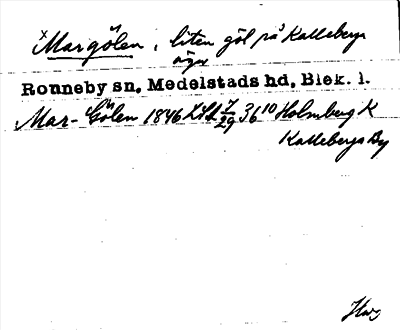 x Margölen, liten göl på Kalleberga
ägor
Ronneby sn, Medelstads hd, Blek. l.
Mar-Gölen 1846 LSA 7/29 36 10 Holmberg K
Kalleberga By